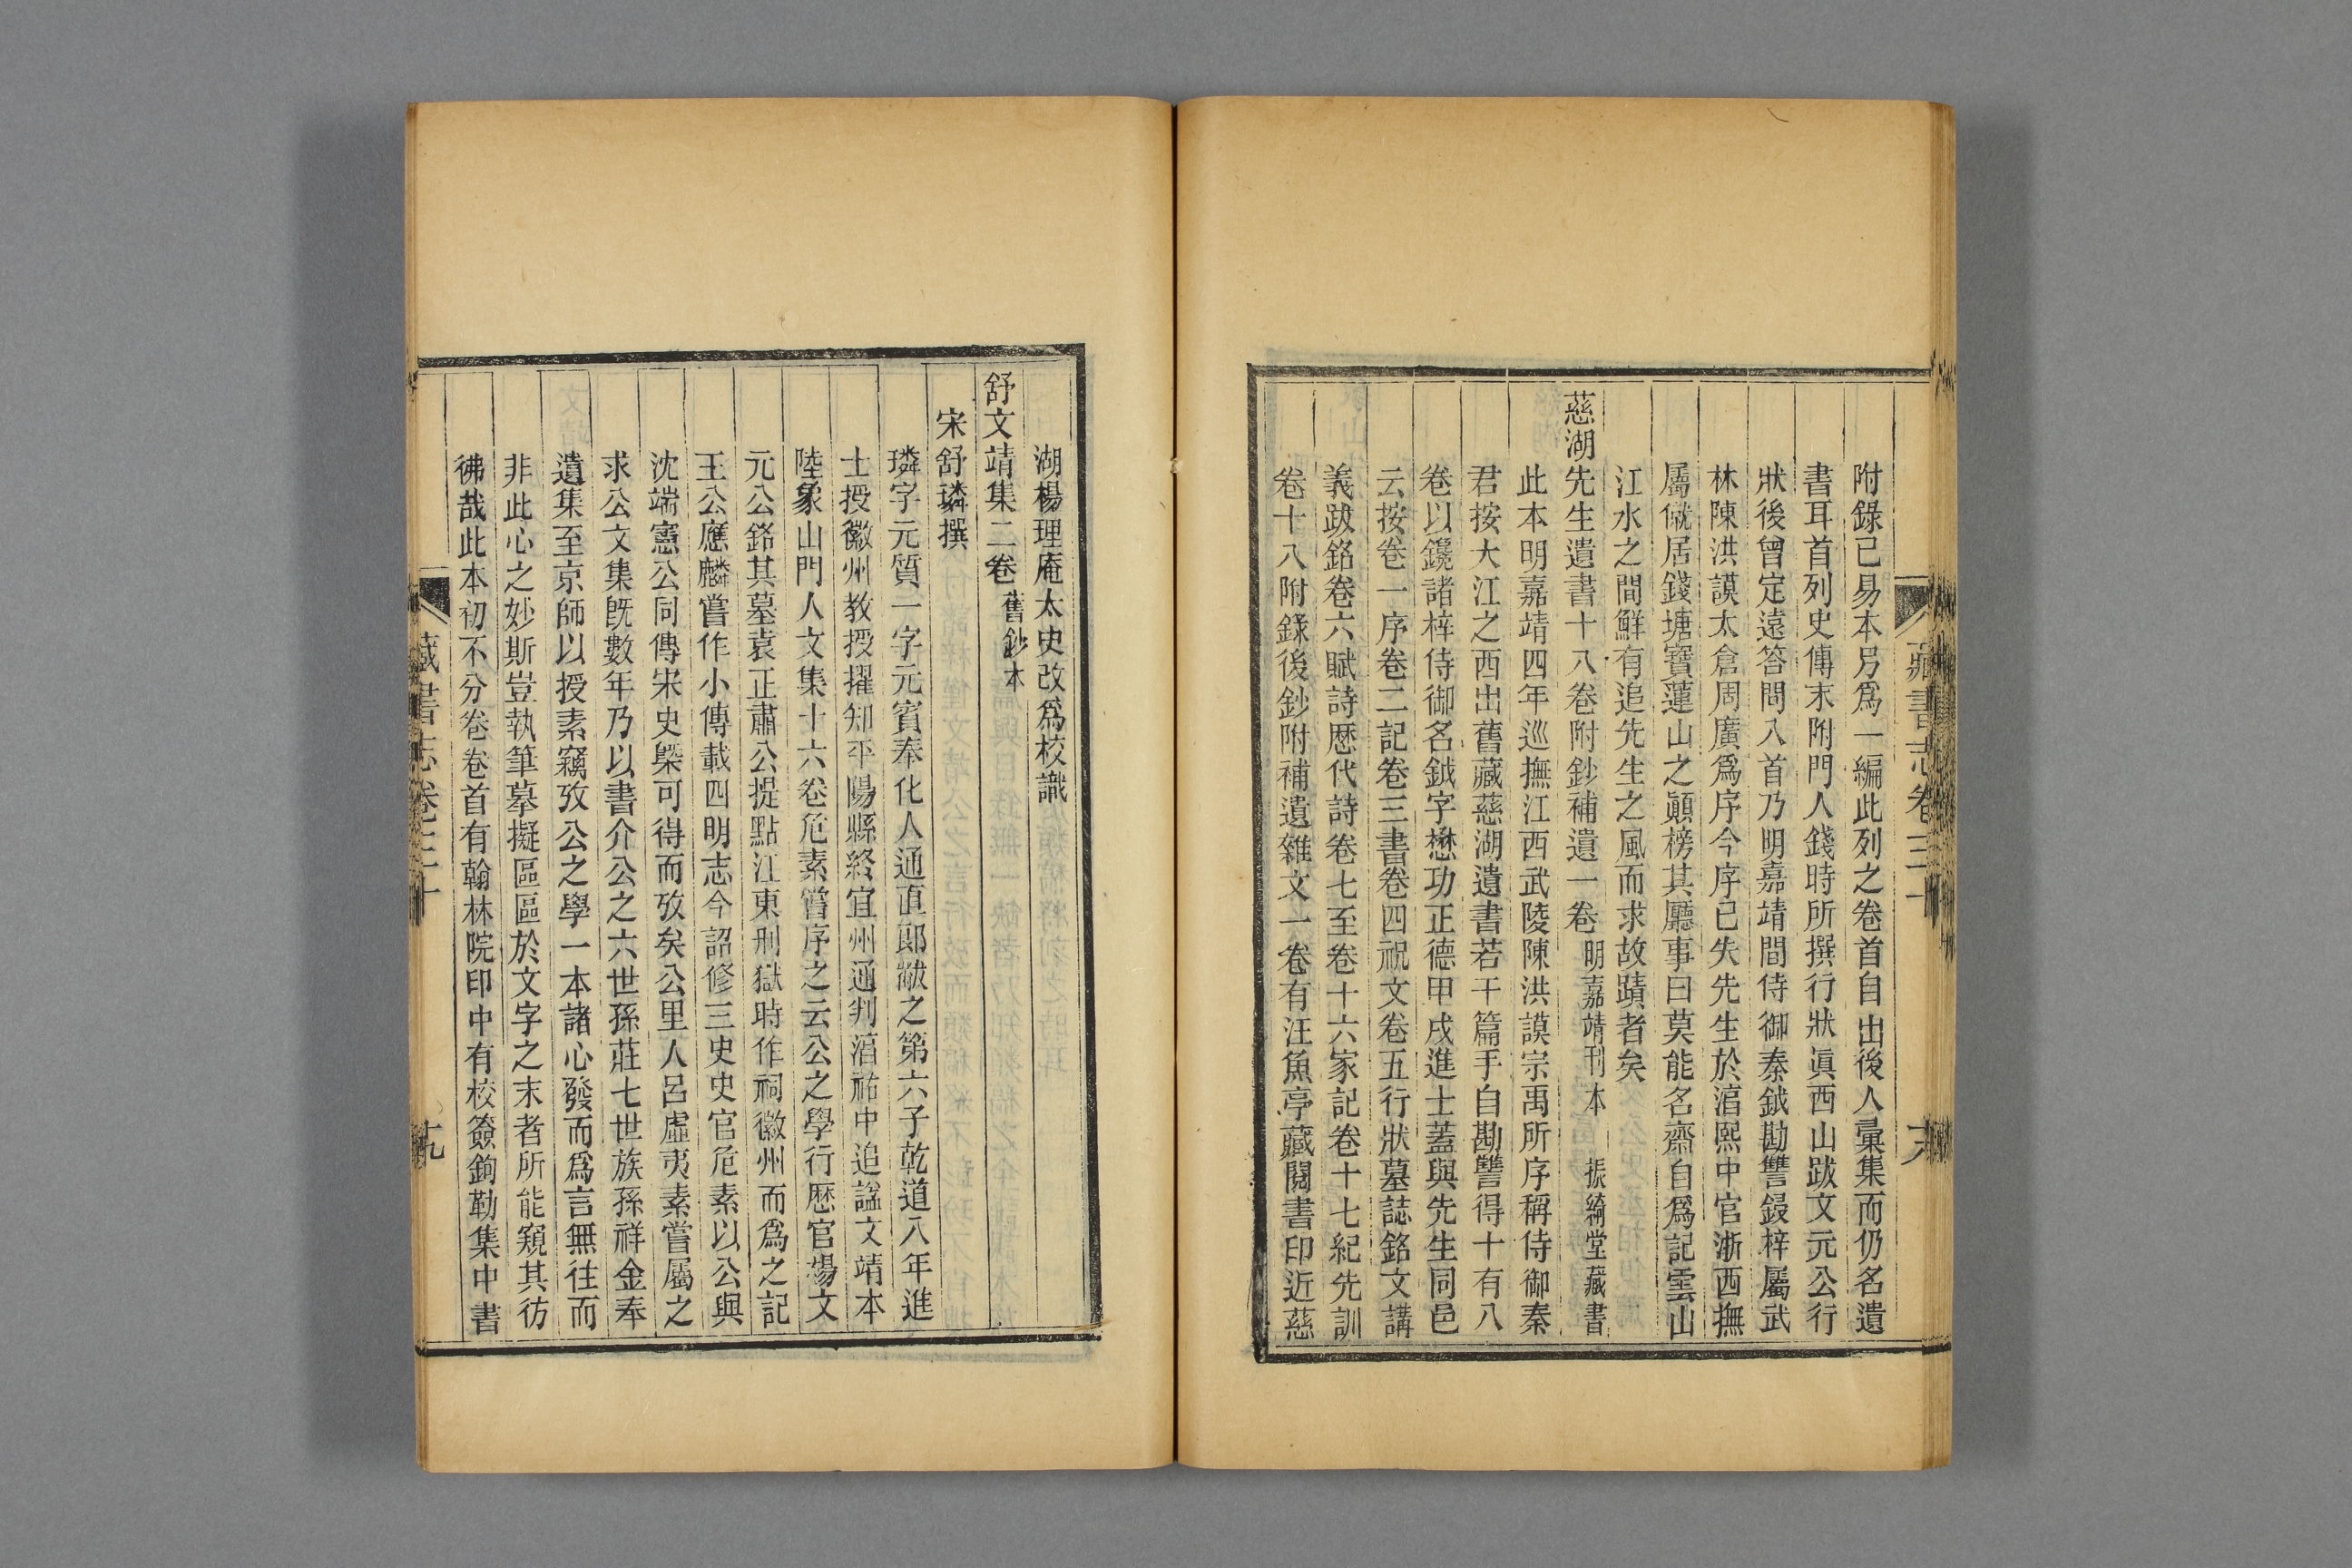 藏書志卷三十
附錄已易本另爲一編此列之卷首自出後人彙集而仍名遺
書耳首列史傳末附門人錢時所撰行狀眞西山跋文元公行
狀後曾定遠答問八首乃明嘉靖間侍御秦鉞勘讐鋟梓屬武
林陳洪謨太倉周廣爲序今序已失先生於湻熙中官浙西撫
屬僦居錢塘寶蓮山之顚榜其廳事曰莫能名齋自爲記雲山
江水之間鮮有追先生之風而求故蹟者矣
慈湖先生遺書十八卷附鈔補遺一卷 明嘉靖刊本 振綺堂藏書
此本明嘉靖四年巡撫江西武陵陳洪謨宗禹所序稱侍御秦
君按大江之西出舊藏慈湖遺書若干篇手自勘讐得十有八
卷以鑱諸梓侍御名鉞字懋功正德甲戌進士蓋與先生同邑
云按卷一序卷二記卷三書卷四祝文卷五行狀墓誌銘文講
義跋銘卷六賦詩歷代詩卷七至卷十六家記卷十七紀先訓
卷十八附錄後鈔附補遺雜文一卷有汪魚亭藏閱書印近慈
湖楊理庵太史改爲校識
舒文靖集二卷 舊鈔本
宋舒璘撰
璘字元質一字元賓奉化人通直郎黻之第六子乾道八年進
士授徽州教授擢知平陽縣終宜州通判湻祐中追謚文靖本
陸象山門人文集十六卷危素嘗序之云公之學行歷官楊文
元公銘其墓袁正肅公提點江東刑獄時作祠徽州而爲之記
王公應麟嘗作小傳載四明志今詔修三史史官危素以公與
沈端憲公同傳宋史槩可得而攷矣公里人呂虛夷素嘗屬之
求公文集旣數年乃以書介公之六世孫莊七世族孫祥金奉
遺集至京師以授素竊攷公之學一本諸心發而爲言無往而
非此心之妙斯豈執筆摹擬區區於文字之末者所能窺其彷
彿哉此本初不分卷卷首有翰林院印中有校簽鉤勒集中書
藏書志卷三十
十九